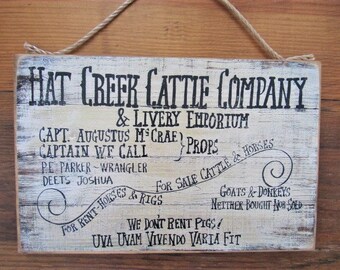 HAT CREEK CATTLE COMPANY
& LIVERY EMPORIUM
CAPT. AUGUSTUS McCRAE
CAPTAIN W.F. CALL } PROPS
P.E. PARKER - WRANGLER
DEETS JOSHUA
FOR RENT-HORSES & RIGS
FOR SALE CATTLE & HORSES
GOATS & DONKEYS
NEITHER BOUGHT NOR SOLD
WE DON'T RENT PIGS!
UVA UVAM VIVENDO VARIA FIT